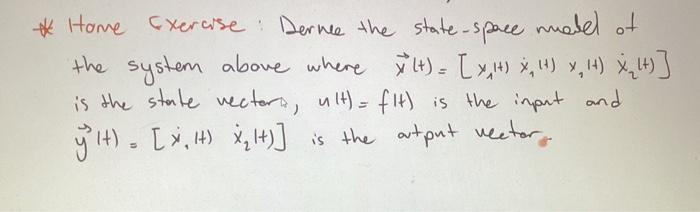 * Home Exercise : Derive the state-space model of
the system above where x⃗(t) = [x₁(t) ẋ₁(t) x₂(t) ẋ₂(t)]
is the state vector, u(t) = f(t) is the input and
y⃗(t) = [ẋ₁(t) ẋ₂(t)] is the output vector.